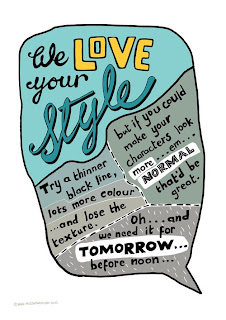 We LOVE
your
Style
but if you could
make your
characters look
more...em...
NORMAL
that'd be
great.
Try a thinner
black line,
lots more colour
...and lose the
texture.
Oh...and
we need it for
TOMORROW...
before noon...